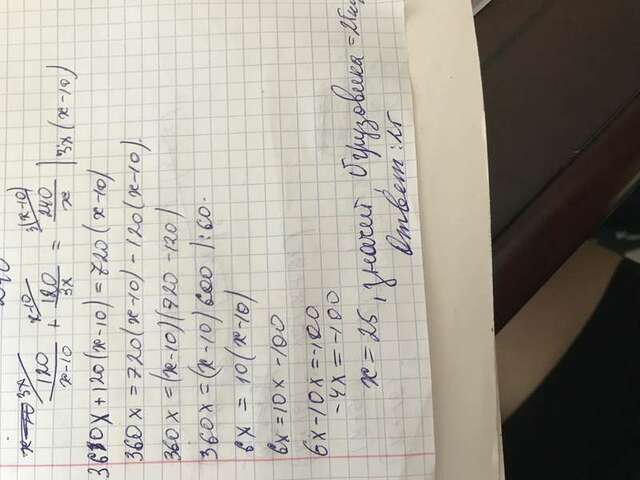 3x x-10 3(x-10)
120/x-10 + 120/3x = 240/x | 3x(x-10)
360x + 120(x-10) = 720(x-10)
360x = 720(x-10) - 120(x-10).
360x = (x-10)(720-120)
360x = (x-10)600 |:60.
6x = 10(x-10)
6x = 10x - 100
6x - 10x = -100
-4x = -100
x = 25, значит, грузовика = 25
Ответ: 25